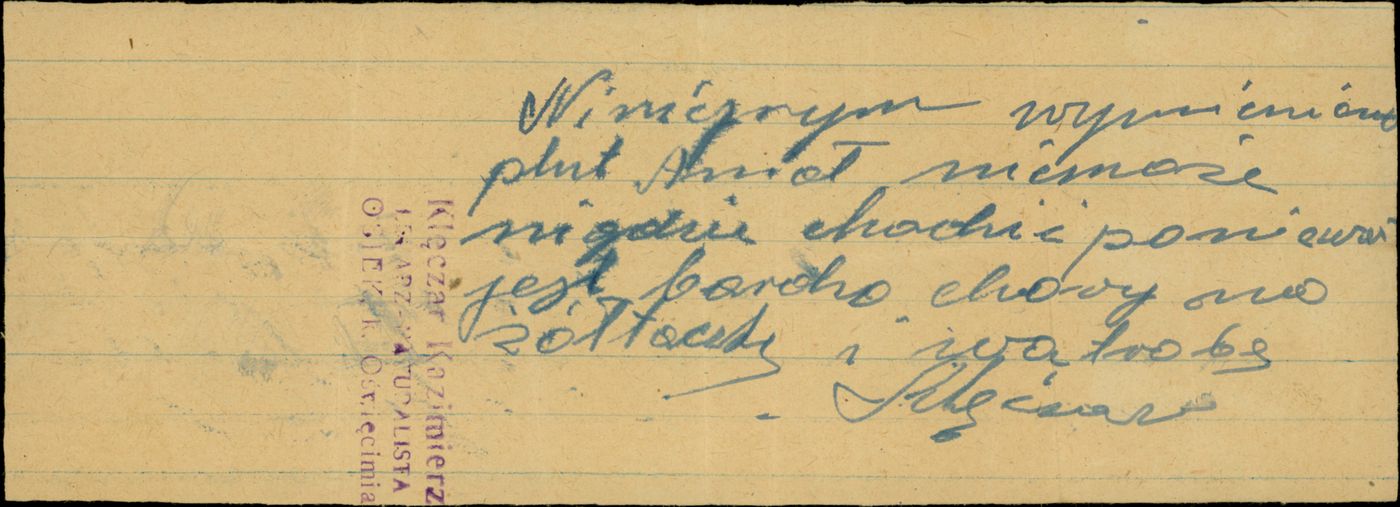 Niniejszym wymieniony
plut Anioł niemoże
nigdzie chodzić ponieważ
jest bardzo chory na
żółtaczkę i wątrobę
Klęczar
Klęczar Kazimierz
LEKARZ-NATURALISTA
OSIEK, k. Oświęcimia